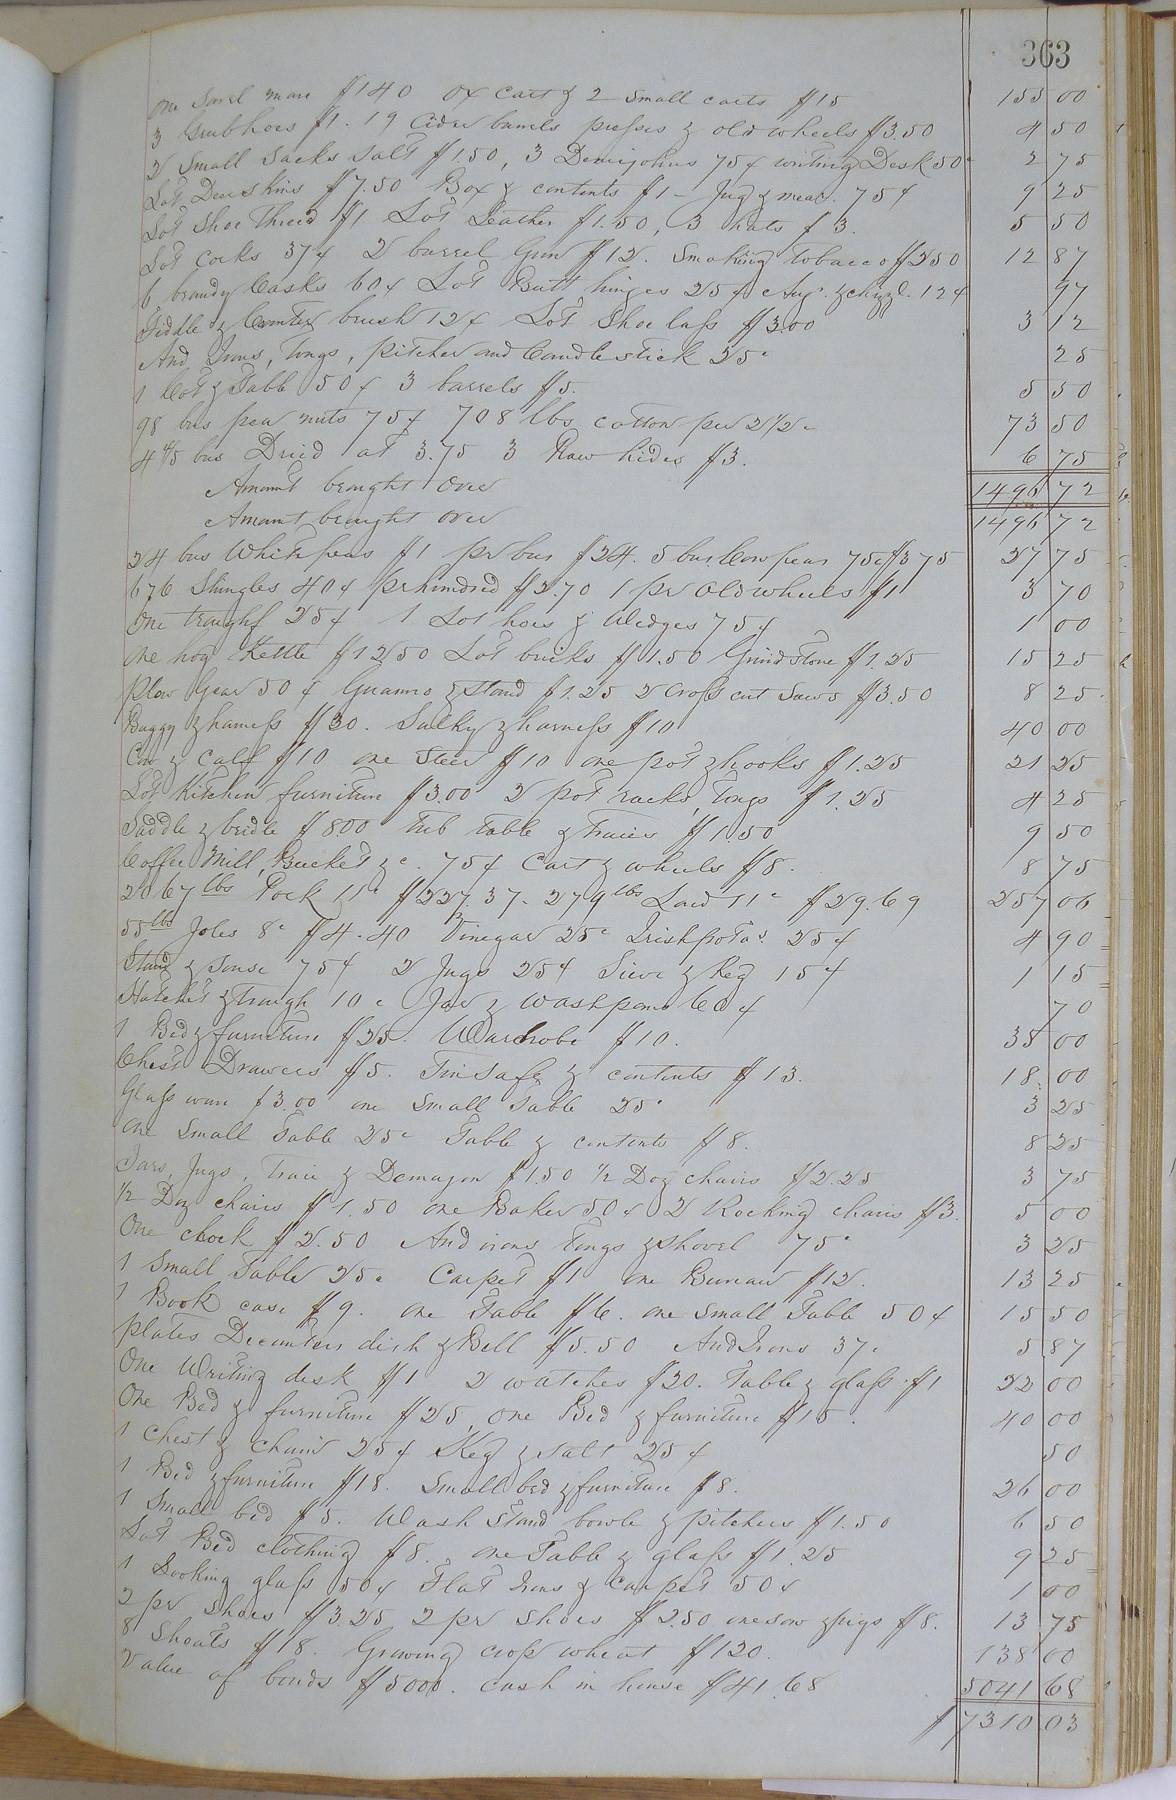 363
One Sorel mare $140 Ox cart & 2 small carts $15 155 00
3 Grubhoes $1. 19 Cider barrels presses & old wheels $3.50 4 50
2 Small Sacks Salt $1.50, 3 Demijohns 75¢ writing Desk 50c 2 75
Lot Deer Skins $7.50 Box & contents $1 - Jug & 75¢ 9 25
Lot Shoe Thread $1 Lot Leather $1.50, 3 hats $3. 5 50
Lot Corks 37¢ 2 barrel Gun $12. Smoking tobacco $2.50 12 87
6 brandy Casks 60¢ Lot Butt hinges 25¢ Aug. & chizzl. 12¢ 97
Fiddle & brush 12¢ Lot Shoe lass $3.00 3 12
And Irons, Tongs, pitcher and Candlestick 25c 25
1 Cot & Table 50¢ 3 barrels $5. 5 50
98 bus pea nuts 75¢ 708 lbs cotton per 2 1/2c 73 50
4 4/5 bus Dried at 3.75 3 Raw hides $3. 6 75
Amount brought Over 1496 72
Amount brought over 1496 72
24 bus White peas $1 pr bus $24. 5 bus. Cow peas 75c $3 75 27 75
676 Shingles 40¢ pr hundred $2.70 1 pr Old wheels $1 3 70
One trough 25¢ 1 Lot hoes & Wedges 75¢ 1 00
One hog Kettle $12.50 Lot bricks $1.50 Grindstone $1.25 15 25
Plow Gear 50¢ Guanno & stand $1.25 2 Cross cut Saws $3.50 8 25
Buggy & harness $30. Sulky & harness $10 40 00
Cow & calf $10 one Steer $10 one pot & hooks $1.25 21 25
Lot Kitchen furniture $3.00 2 pot racks, Tongs $1.25 4 25
Saddle & bridle $8.00 tub table & Traies $1.50 9 50
Coffee Mill, Bucket &c. 75¢ Cart & wheels $8. 8 75
2067 lbs Pork 11c $227.37. 279 lbs Lard 11c $29.69 257 06
55 lbs Joles 8c $4.40 Vinegar 25c Irish pota's. 25¢ 4 90
Stand & Souse 75¢ 2 Jugs 25¢ Sieve & Keg 15¢ 1 15
Hatchet & trough 10c Jar & wash pans 60¢ 70
1 Bed & furniture $25. Wardrobe $10. 35 00
Chest Drawers $5. Tin Safe & contents $13. 18 00
Glass ware $3.00 one Small table 25c 3 25
One Small Table 25c Table & contents $8. 8 25
Jars, Jugs, Traie & Demajon $1.50 1/2 Doz chairs $2.25 3 75
1/2 Doz chairs $1.50 one Baker 50¢ 2 Rocking chairs $3. 5 00
One clock $2.50 And irons Tongs & shovel 75c 3 25
1 Small Table 25c Carpet $1 one Bureau $12. 13 25
1 Book case $9. one Table $6. one Small Table 50¢ 15 50
plates Decanters dish & Bell $5.50 And Irons 37c 5 87
One Writing desk $1 2 watches $20. Table & glass $1 22 00
One Bed & furniture $25 one Bed & furniture $15. 40 00
1 Chest & chair 25¢ Keg & salt 25¢ 50
1 Bed & furniture $18. Small bed & furniture $8. 26 00
1 Small bed $5. Wash Stand bowle & pitchers $1.50 6 50
Lot Bed clothing $8. one Table & glass $1.25 9 25
1 Looking glass 50¢ Flat Irons & Carpet 50¢ 1 00
2 pr Shoes $3.25 2 pr Shoes $2.50 one sow & pigs $8. 13 75
8 Shoats $18. Growing crop wheat $120. 138 00
Value of bonds $5000. cash in house $41.68 5041 68
$7310 03